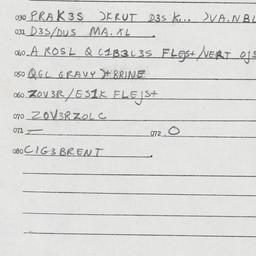 030 PRAK3S DKRUT D3S K... DVA.NBL
031 D3S/DUS MA.KL
040 A ROSL Q C1B3L3S FLEJS+/VERT OJS
050 QGL GRAVY D+BRINE
060 ZOV3R/ES1K FLEJS+
070 ZOV3RZOLC
071 —
072 . O
080 C1G3BRENT